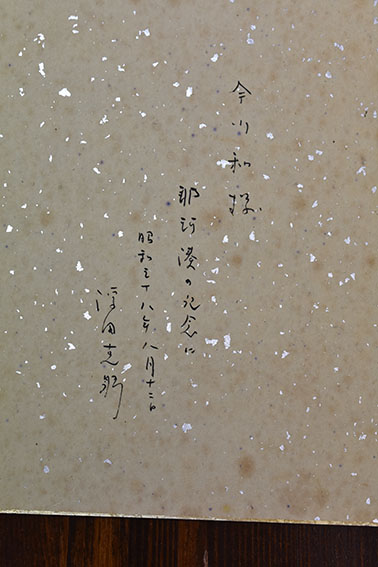 今川和様
那珂湊の記念に
昭和三十八年八月十二日
浮田克躬